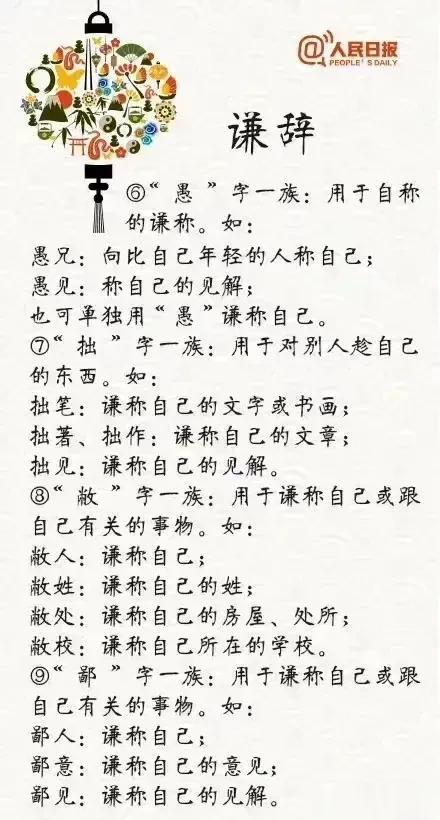 @人民日报
PEOPLE'S DAILY
谦辞
⑥“愚”字一族：用于自称
的谦称。如：
愚兄：向比自己年轻的人称自己；
愚见：称自己的见解；
也可单独用“愚”谦称自己。
⑦“拙”字一族：用于对别人趁自己
的东西。如：
拙笔：谦称自己的文字或书画；
拙著、拙作：谦称自己的文章；
拙见：谦称自己的见解。
⑧“敝”字一族：用于谦称自己或跟
自己有关的事物。如：
敝人：谦称自己；
敝姓：谦称自己的姓；
敝处：谦称自己的房屋、处所；
敝校：谦称自己所在的学校。
⑨“鄙”字一族：用于谦称自己或跟
自己有关的事物。如：
鄙人：谦称自己；
鄙意：谦称自己的意见；
鄙见：谦称自己的见解。